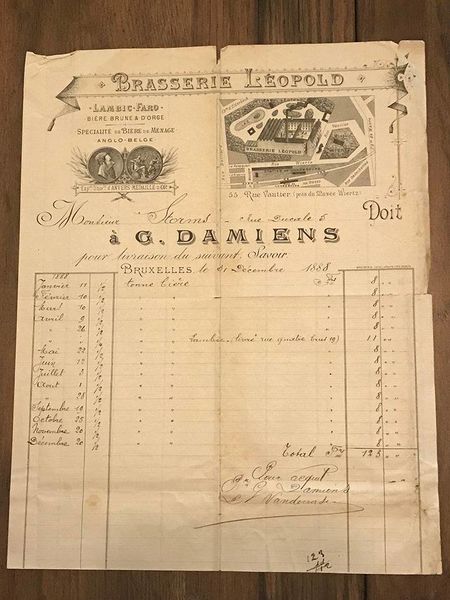 BRASSERIE LÉOPOLD
LAMBIC-FARO
BIÈRE BRUNE & D'ORGE
SPÉCIALITÉ DE BIÈRE DE MÉNAGE
ANGLO-BELGE
D'ANVERS MÉDAILLE D'OR
BRASSERIE LÉOPOLD
55 Rue Vautier (près du Musée Wiertz)
Monsieur Storms - Rue Ducale 5 Doit
à G. DAMIENS
pour livraison du suivant, Savoir
BRUXELLES, le 31 Décembre 1888
1888
Janvier 11 1/2 tonne bière Fr 8 " "
Février 10 1/2 " " 8 " "
Mars 10 1/2 " " 8 " "
Avril 9 1/2 " " 8 " "
" 26 1/2 " " Lambic livré rue 19) 11 " "
Mai 22 1/2 " " 8 " "
Juin 12 1/2 " " 8 " "
Juillet 3 1/2 " " 8 " "
Août 1 1/2 " " 8 " "
" 1/2 " " 8 " "
Septembre 10 1/2 " " 8 " "
Octobre 25 1/2 " " 8 " "
Novembre 20 1/2 " " 8 " "
Décembre 20 1/2 " " 8 " "
Total Fr 123 " "
Pour acquit
G. Damiens
123